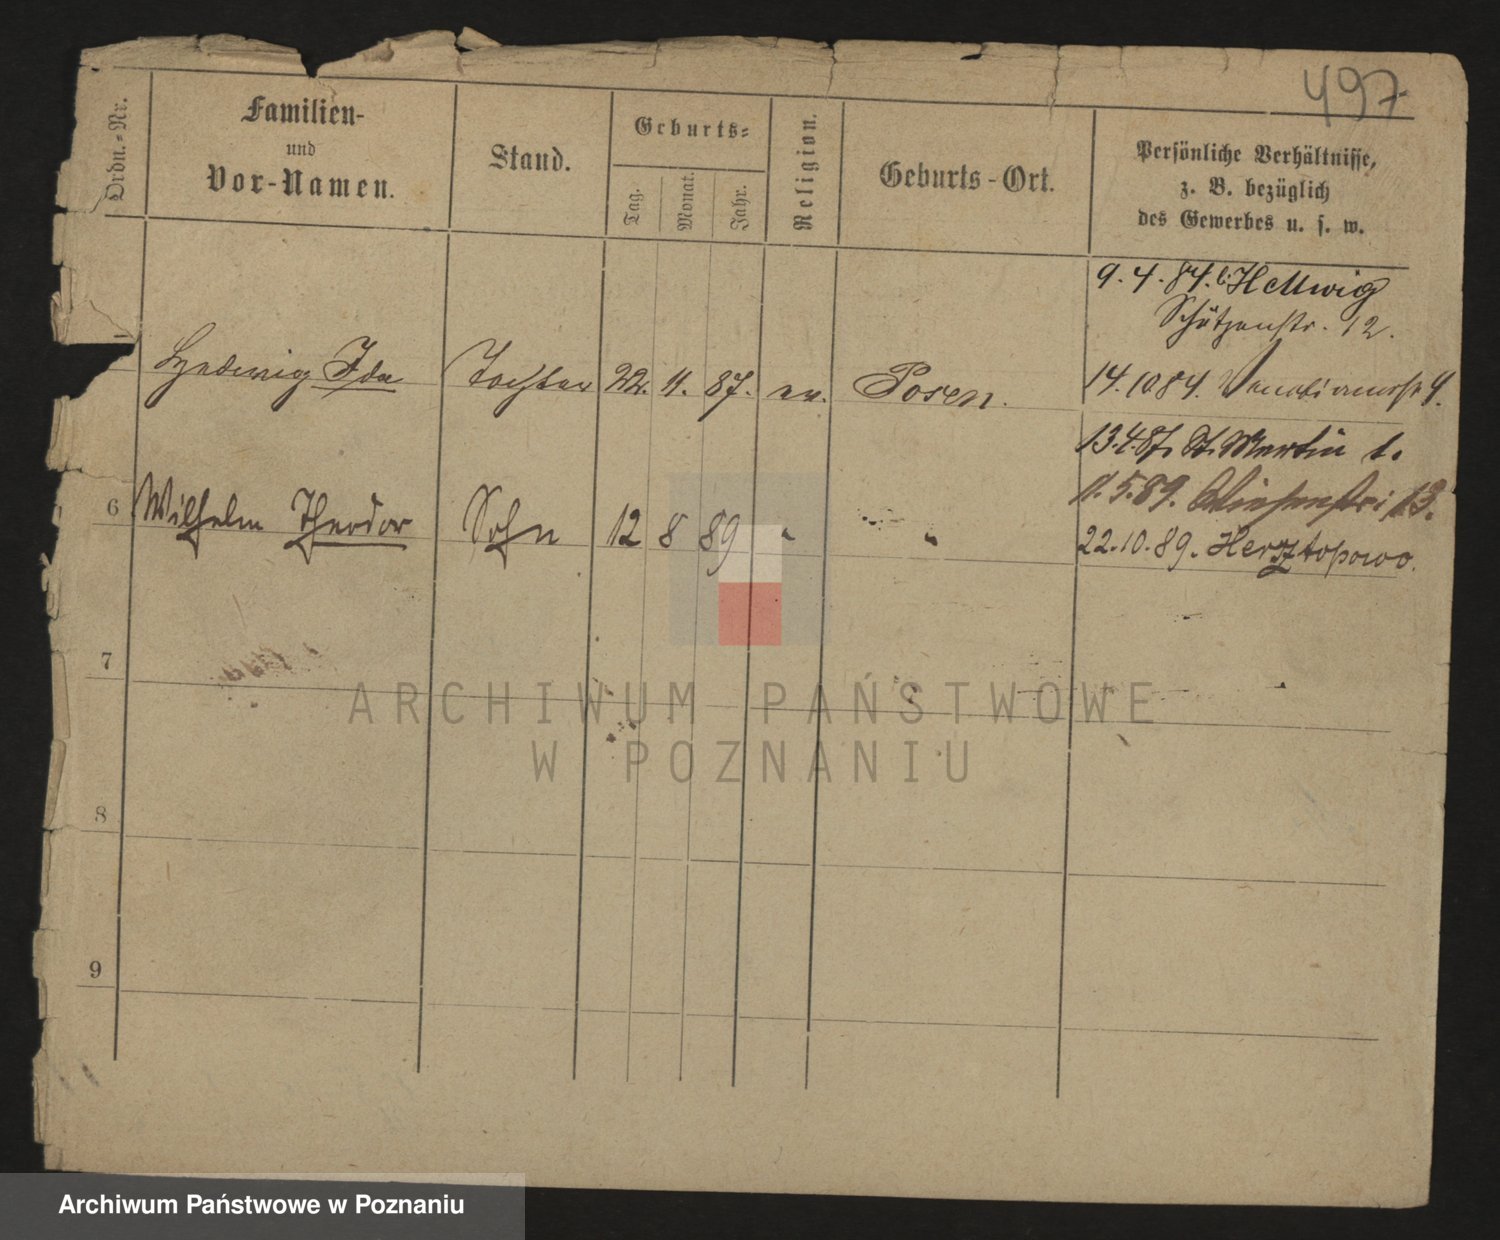 497
Ordn.-Nr.
Familien-
und
Vor-Namen.
Stand.
Geburts-
Tag.
Monat.
Jahr.
Religion.
Geburts-Ort.
Persönliche Verhältnisse,
z. B. bezüglich
des Gewerbes u. s. w.
9. 4. 84. b. Hellwig
Schützenstr. 12.
Hedwig Ida Tochter 22. 11. 87. ev. Posen.
14. 10 84. 4.
13. 4. 87. St. Martin 1.
11. 5. 89. Wiesenstr. 13.
6 Wilhelm Theodor Sohn 12 8 89 " "
22. 10. 89. Hersztopowo.
7
8
9
ARCHIWUM PAŃSTWOWE
W POZNANIU
Archiwum Państwowe w Poznaniu